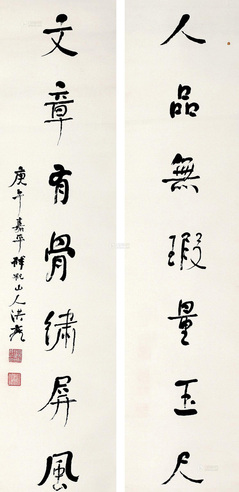 人品無瑕量玉尺
文章有骨繡屏風
庚午嘉平
山人洪亮